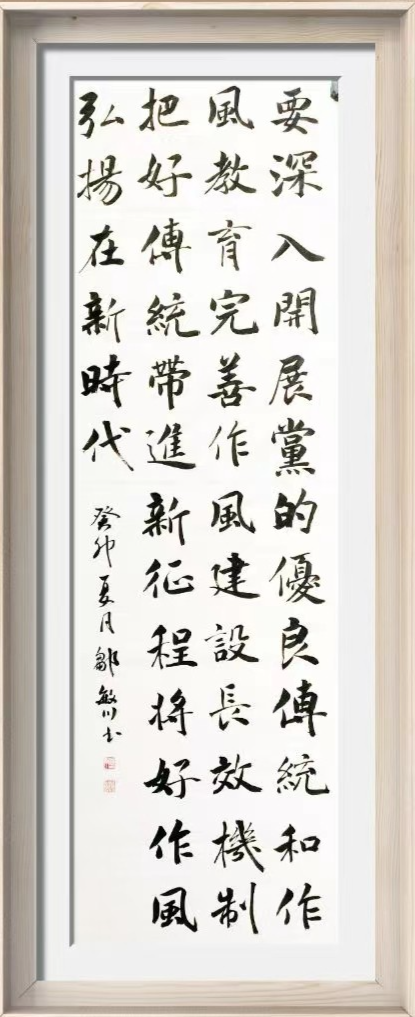 要深入開展黨的優良傳統和作
風教育完善作風建設長效機制
把好傳統帶進新征程將好作風
弘揚在新時代
癸卯夏月鄒敏川书